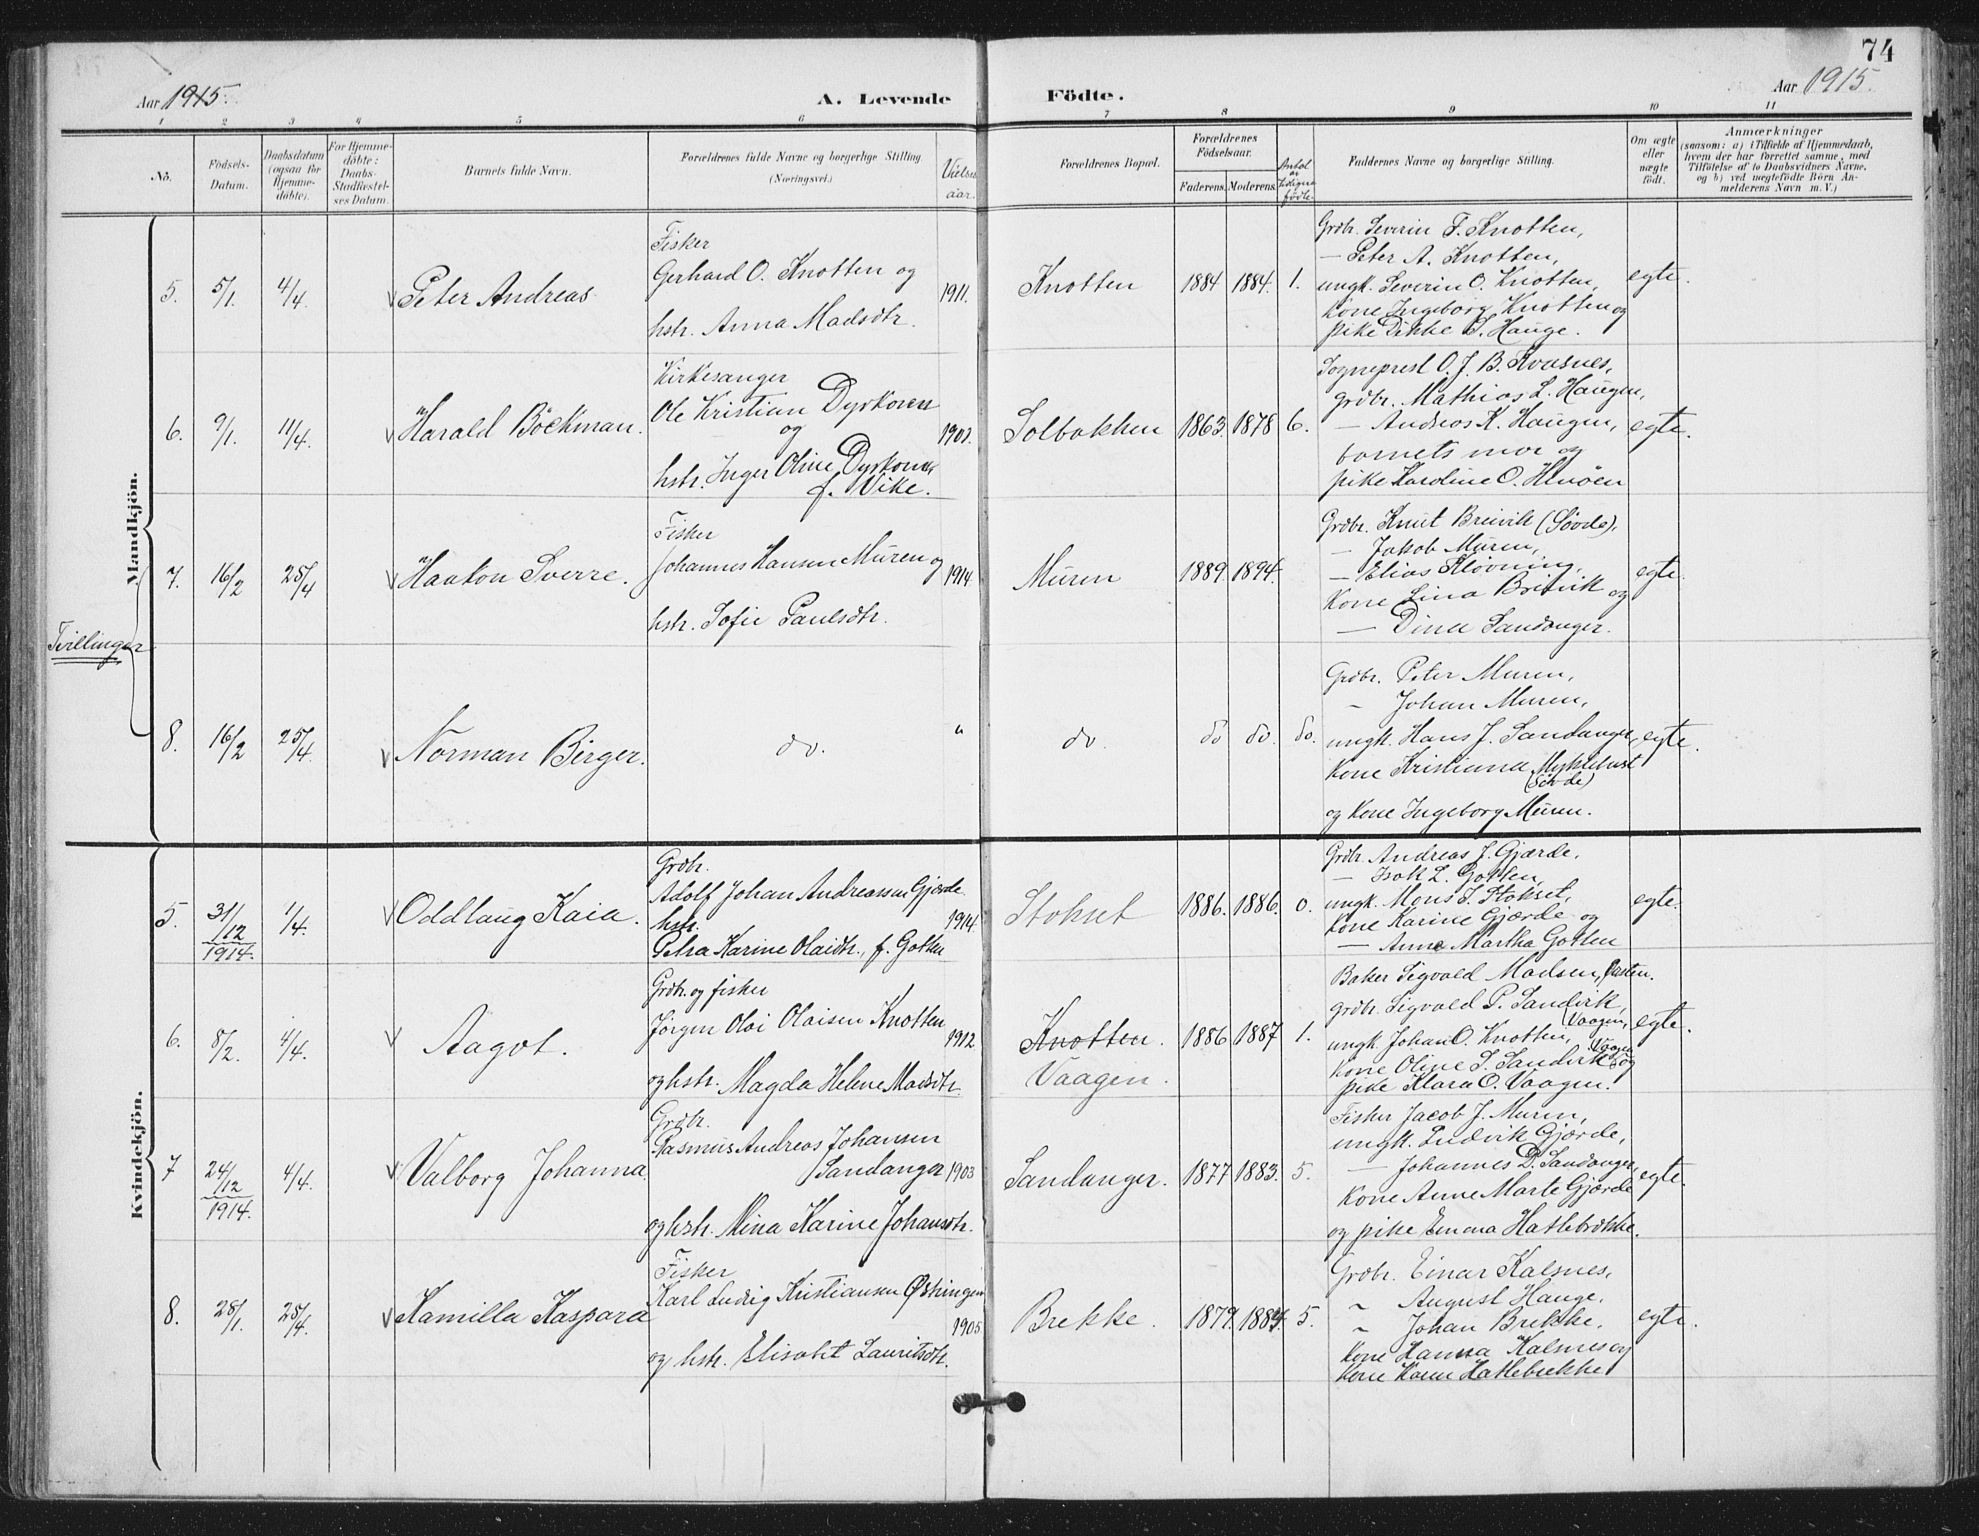 74
Aar 1915.
A. Levende Födte.
Aar 1915.
1 2 3 4 5 6 7 8 9 10 11
No.
Födsels-
Datum.
Daabsdatum
(ogsaa for
Hjemme-
döbte).
For Hjemme-
döbte:
Daabs-
Stadfæstel-
ses Datum.
Barnets fulde Navn.
Forældrenes fulde Navne og borgerlige Stilling.
(Næringsvei.)
Vielses
aar.
Forældrenes Bopæl.
Forældrenes
Födselsaar.
Faderens. Moderens.
Antal
af
tidligere
födte
Faddernes Navne og borgerlige Stilling.
Om ægte
eller
uægte
födt.
Anmærkninger
(saasom: a) i Tilfælde af Hjemmedaab,
hvem der har forrettet samme, med
Tilföielse af to Daabsvidners Navne,
og b) ved uægtefödte Börn An-
melderens Navn m. V.)
Mandkjön.
5. 5/1. 4/4. Peter Andreas.
Fisker
Gerhard O. Knotten og
hstr. Anna Madsdtr.
1911.
Knotten 1884 1884. 1.
Grdbr. Severin F. Knotten,
— Peter A. Knotten,
ungk. Severin O. Knotten,
kone Ingeborg Knotten og
pike Rikke S. Hauge.
egte.
6. 9/1. 11/4. Harald Böckman.
Kirkesanger
Ole Kristian Dyrkoren
og
hstr. Inger Oline Dyrkoren
f. Vike.
1902.
Solbakken 1863. 1878 6.
Sogneprest O. J. B. Kvasnes,
grdbr. Mathias L. Haugen,
— Andreas K. Haugen,
barnets mor og
pike Karoline O. Hlnöen
egte.
Tvillinger
7. 16/2 25/4 Haakon Sverre.
Fisker
Johannes Hansen Muren og
hstr. Sofie Paulsdtr.
1914.
Muren 1889. 1894.
Grdbr. Knut Breivik (Søvde),
— Jakob Muren,
— Elias Kløvning,
Kone Lina Breivik og
— Dina Sandanger.
egte.
8. 16/2 25/4. Norman Birger.
do.
"
do. do do. do.
Grdbr. Peter Muren,
— Johan Muren,
ungk. Hans J. Sandanger,
Kone Kristiana Myklebust
(Søvde)
og Kone Ingeborg Muren.
egte.
Kvindekjön.
5. 31/12 1914. 1/4. Oddlaug Kaia.
Grdbr.
Adolf Johan Andreassen Gjærde
hstr.
Petra Karine Olaidtr., f. Gotten
1914.
Stokset 1886. 1886. 0.
Grdbr. Andreas J. Gjærde,
— Isak L. Gotten,
ungk. Mons S. Stokset,
Kone Karine Gjærde og
— Anne Martha Gotten
egte.
6. 8/2. 4/4. Aagot.
Grdbr. og fisker
Jörgen Olai Olaisen Knotten
og hstr. Magda Helene Madsdtr.
1912.
Knotten.
Vaagen.
1886 1887 1.
Baker Sigvald Madsen,
grdbr. Sigvald P. Sandvik,
(Vaagen,
ungk. Johan O. Knotten,
Vaagen
Kone Oline S. Sandvik og
pike Klara O. Vaagen.
egte.
7 24/12 1914. 4/4. Valborg Johanna.
Grdbr.
Rasmus Andreas Johansen
Sandanger
og hstr. Mina Karine Johansdtr.
1903
Sandanger. 1877 1883. 5.
Fisker Jacob J. Muren,
ungk. Ludvik Gjærde,
— Johannes D. Sandanger,
Kone Anne Marte Gjærde
og pike Emma Hatlebrekke.
egte.
8. 28/1. 25/4. Kamilla Kaspara
Fisker
Karl Ludvig Kristiansen
og hstr. Elisabet Lauritsdtr.
1905
Brekke. 1879. 1884. 5.
Grdbr. Einar Kalsnes,
" August Hauge.
" Johan Brekke.
Kone Hanna Kalsnes og
Kone Karen Hatlebrekke
egte.